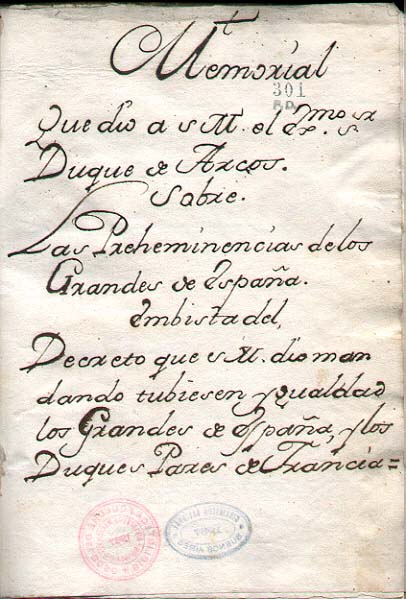 Memorial
301
Que dio a s M. el Ex.mo sr
Duque de Arcos.
Sobre.
Las Preheminencias de los
Grandes de España.
Embista del,
Decreto que s M. dio man
dando tubiesen ygualdad
los Grandes de España, y los
Duques Pares de Francia=
BUENOS AIRES